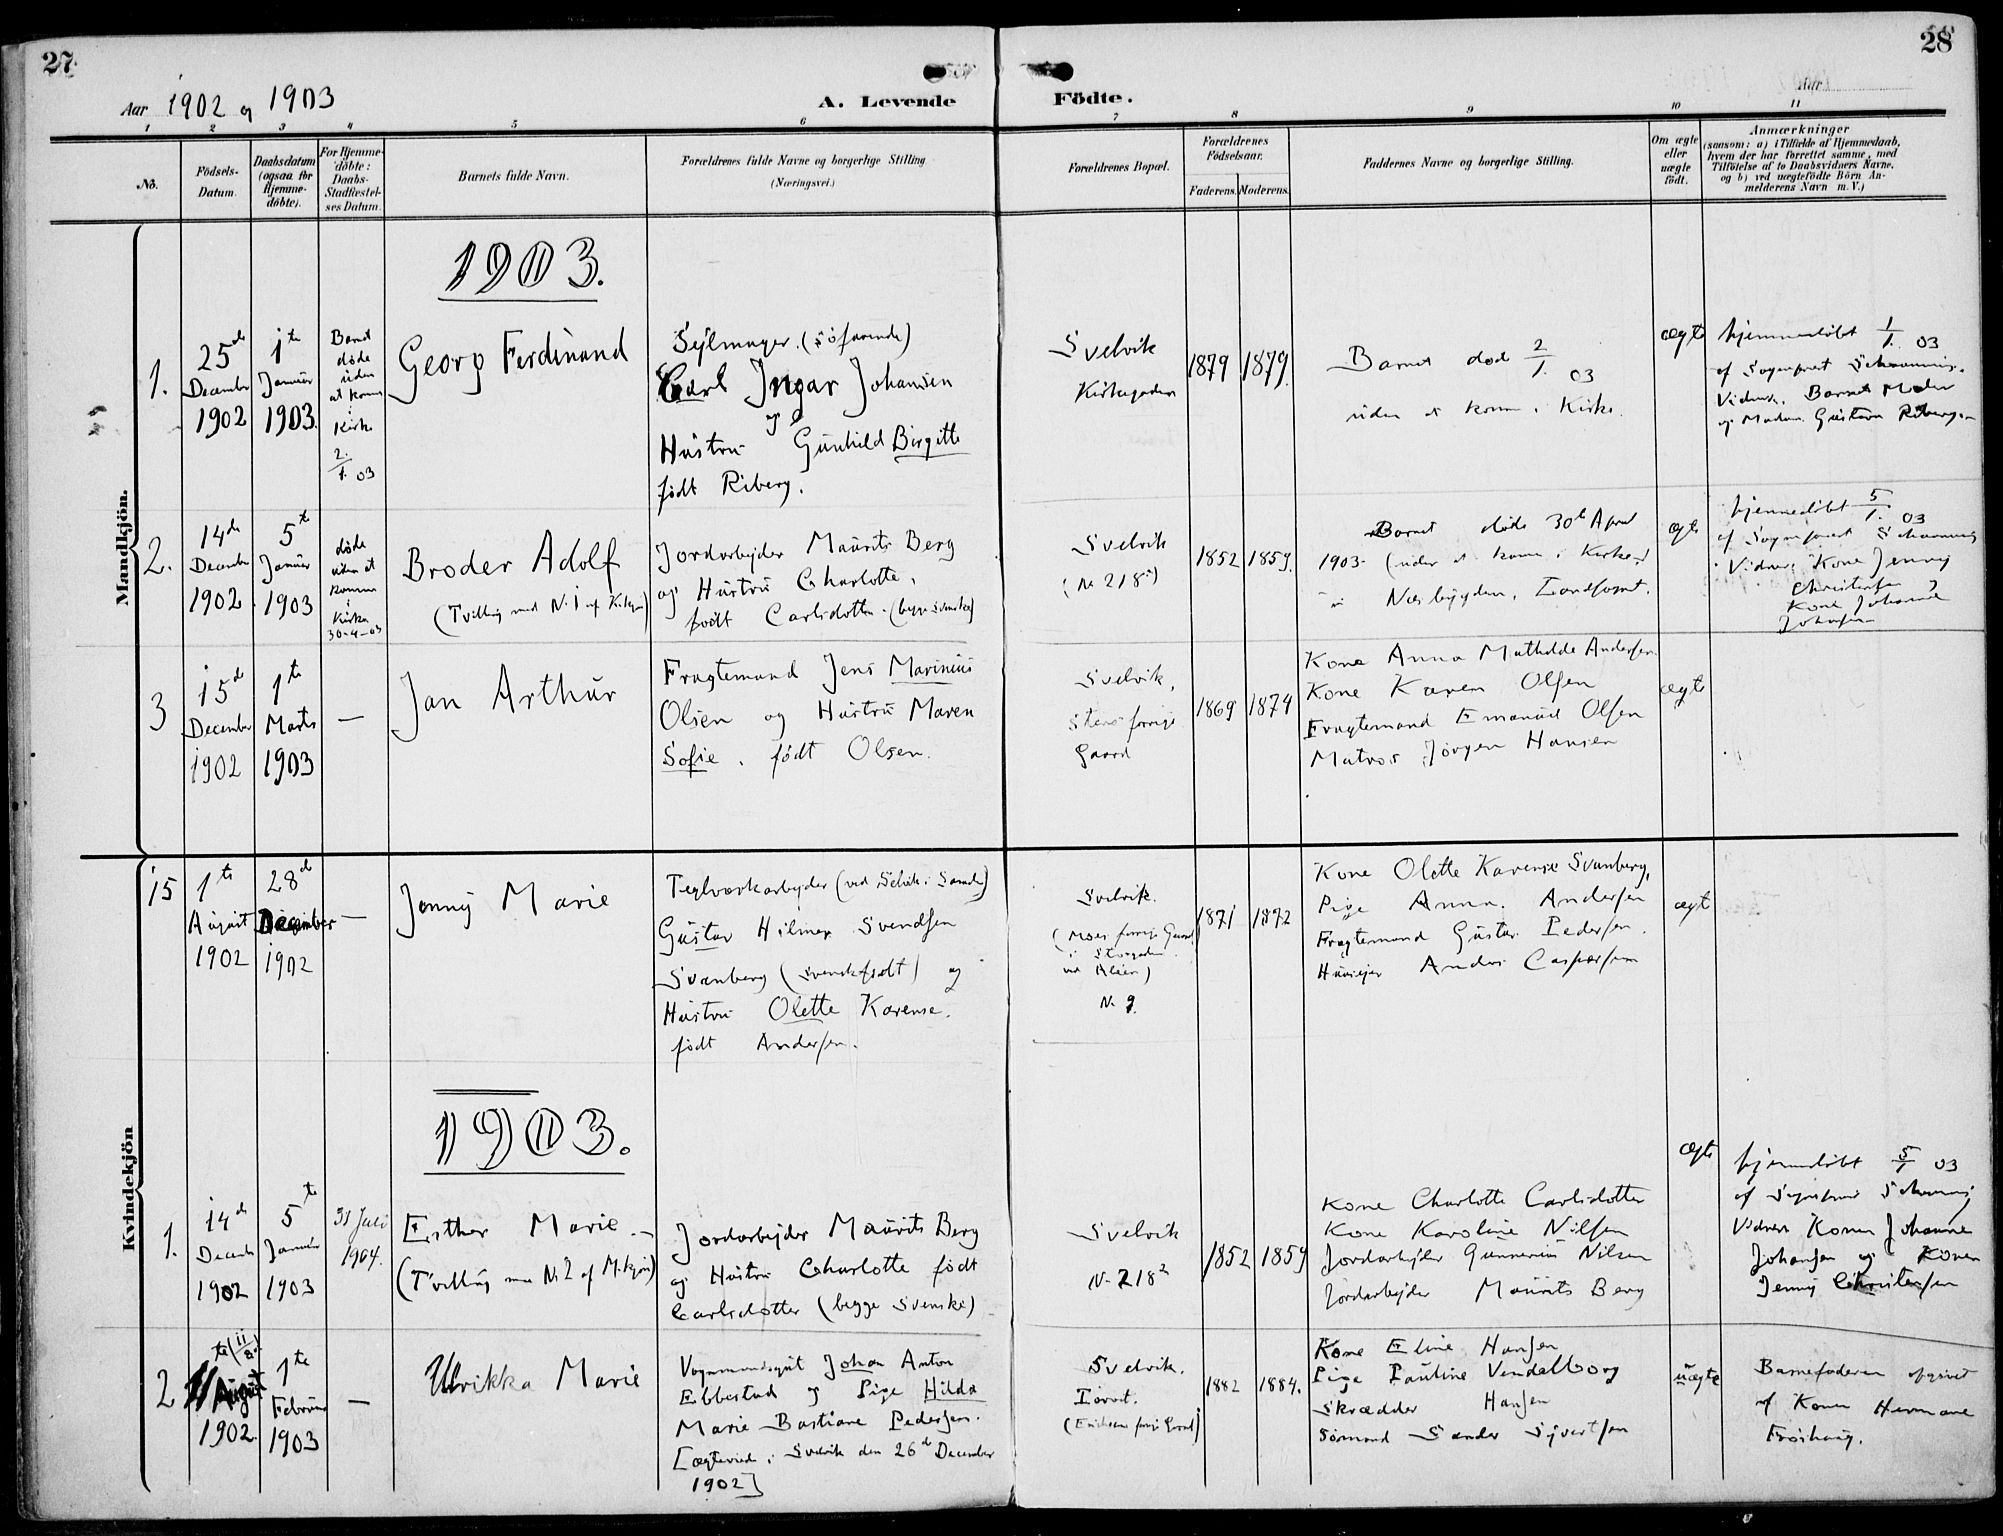 27
28
Aar 1902 og 1903
A. Levende Födte.
Aar
1 2 3 4 5 6 7 8 9 10 11
No.
Födsels-
Datum.
Daabsdatum
(ogsaa for
Hjemme-
döbte).
For Hjemme-
döbte:
Daabs-
Stadfæstel-
ses Datum.
Barnets fulde Navn.
Forældrenes fulde Navne og borgerlige Stilling
(Næringsvei.)
Forældrenes Bopæl.
Forældrenes
Födselsaar.
Faderens. Moderens.
Faddernes Navne og borgerlige Stilling.
Om ægte
eller
uægte
födt.
Anmærkninger
(saasom: a) i Tilfælde af Hjemmedaab,
hvem der har forrettet samme, med
Tilföielse af to Daabsvidners Navne.
og b) ved uægtefödte Börn An-
melderens Navn m. V.)
Mandkjön.
1903.
1.
25de
December
1902
1te
Januar
1903.
Barnet
døde
uden
at komme
i
Kirke
2/1 03
Georg Ferdinand
Sejlmager (søfarende)
Carl Ingvar Johansen
og
Hustru Gunhild Birgitte
født Riberg.
Svelvik
Kirkegaden
1879
1879.
Barnet død 2/1 03
uden at komme i Kirke.
ægte
hjemmedøbt 1/1 03
af Sognepræst
Vidner: Barnets Moder
og Madam Gustava Riberg
2.
14de
December
1902
5te
Januar
1903
døde
uden at
komme
i
Kirke
30-4-03
Broder Adolf
(Tvilling med N. 1 af K.kjøn)
Jordarbejder Maurits Berg
og Hustru Charlotte,
født Carlsdotter (begge svenske)
Svelvik
(No 218)
1852
1859.
Barnet døde 30te April
1903 (uden at komme i Kirke)
i Nesbygden,
ægte
hjemmedøbt 5/1 03
af Sognepræst
Vidner: Kone Jenny
Christensen
Kone Johanne
Johansen
3
15de
December
1902
1te
Marts
1903
—
Jan Arthur
Fragtemand Jens Marinius
Olsen og Hustru Maren
Sofie, født Olsen.
Svelvik,
Stens forrige
Gaard
1869
1874
Kone Anna Mathilde Andersen
Kone Karen Olsen
Fragtemand Emanuel Olsen
Matros Jörgen Hansen
ægte
Kvindekjön
15
1te
August
1902
28de
December
1902
—
Jenny Marie
Teglværkarbejder (ved Selvik i Sande)
Gustav Hilmer Svendsen
Svanberg (svenskfødt) og
Hustru Olette Karense,
født Andersen.
Svelvik.
(Moes forrige Gaard
i Storgaden
ved Aaen)
N. 9.
1871
1872
Kone Olette Karense Svanberg,
Pige Anna Andersen
Fragtemand Gustav Pedersen.
Husejer Anders Caspersen
ægte
1903.
1.
14de
Decemb
1902
5te
Januar
1903
31 Juli
1904.
Esther Marie
(Tvilling med N. 2 af M.kjøn)
Jordarbejder Maurits Berg
og Hustru Charlotte født
Carlsdotter (begge svenske)
Svelvik
N. 218
1852
1859
Kone Charlotte Carlsdotter
Kone Karoline Nilsen
Jordarbejder Gunnerius Nilsen
Jordarbejder Maurits Berg
ægte
hjemmedøbt 5/1 03
af Sognepræst
Vidner Konen Johanne
Johansen og Konen
Jenny Christensen
2
11te (11/8)
August
1902.
1te
Februar
1903
—
Ulrikka Marie
Vognmandsgut Johan Anton
Ebbestad og Pige Hilda
Marie Bastiane Pedersen.
[ægteviede i Svelvik den 26de December
1902]
Svelvik.
Torvet.
(Eriksens forrige Gaard)
1882
1884.
Kone Eline Hansen
Pige Pauline Vendelborg
Skrædder Hansen
Sømand Sander Syvertsen
uægte
Barnefaderen opgivet
af Konen Hermane